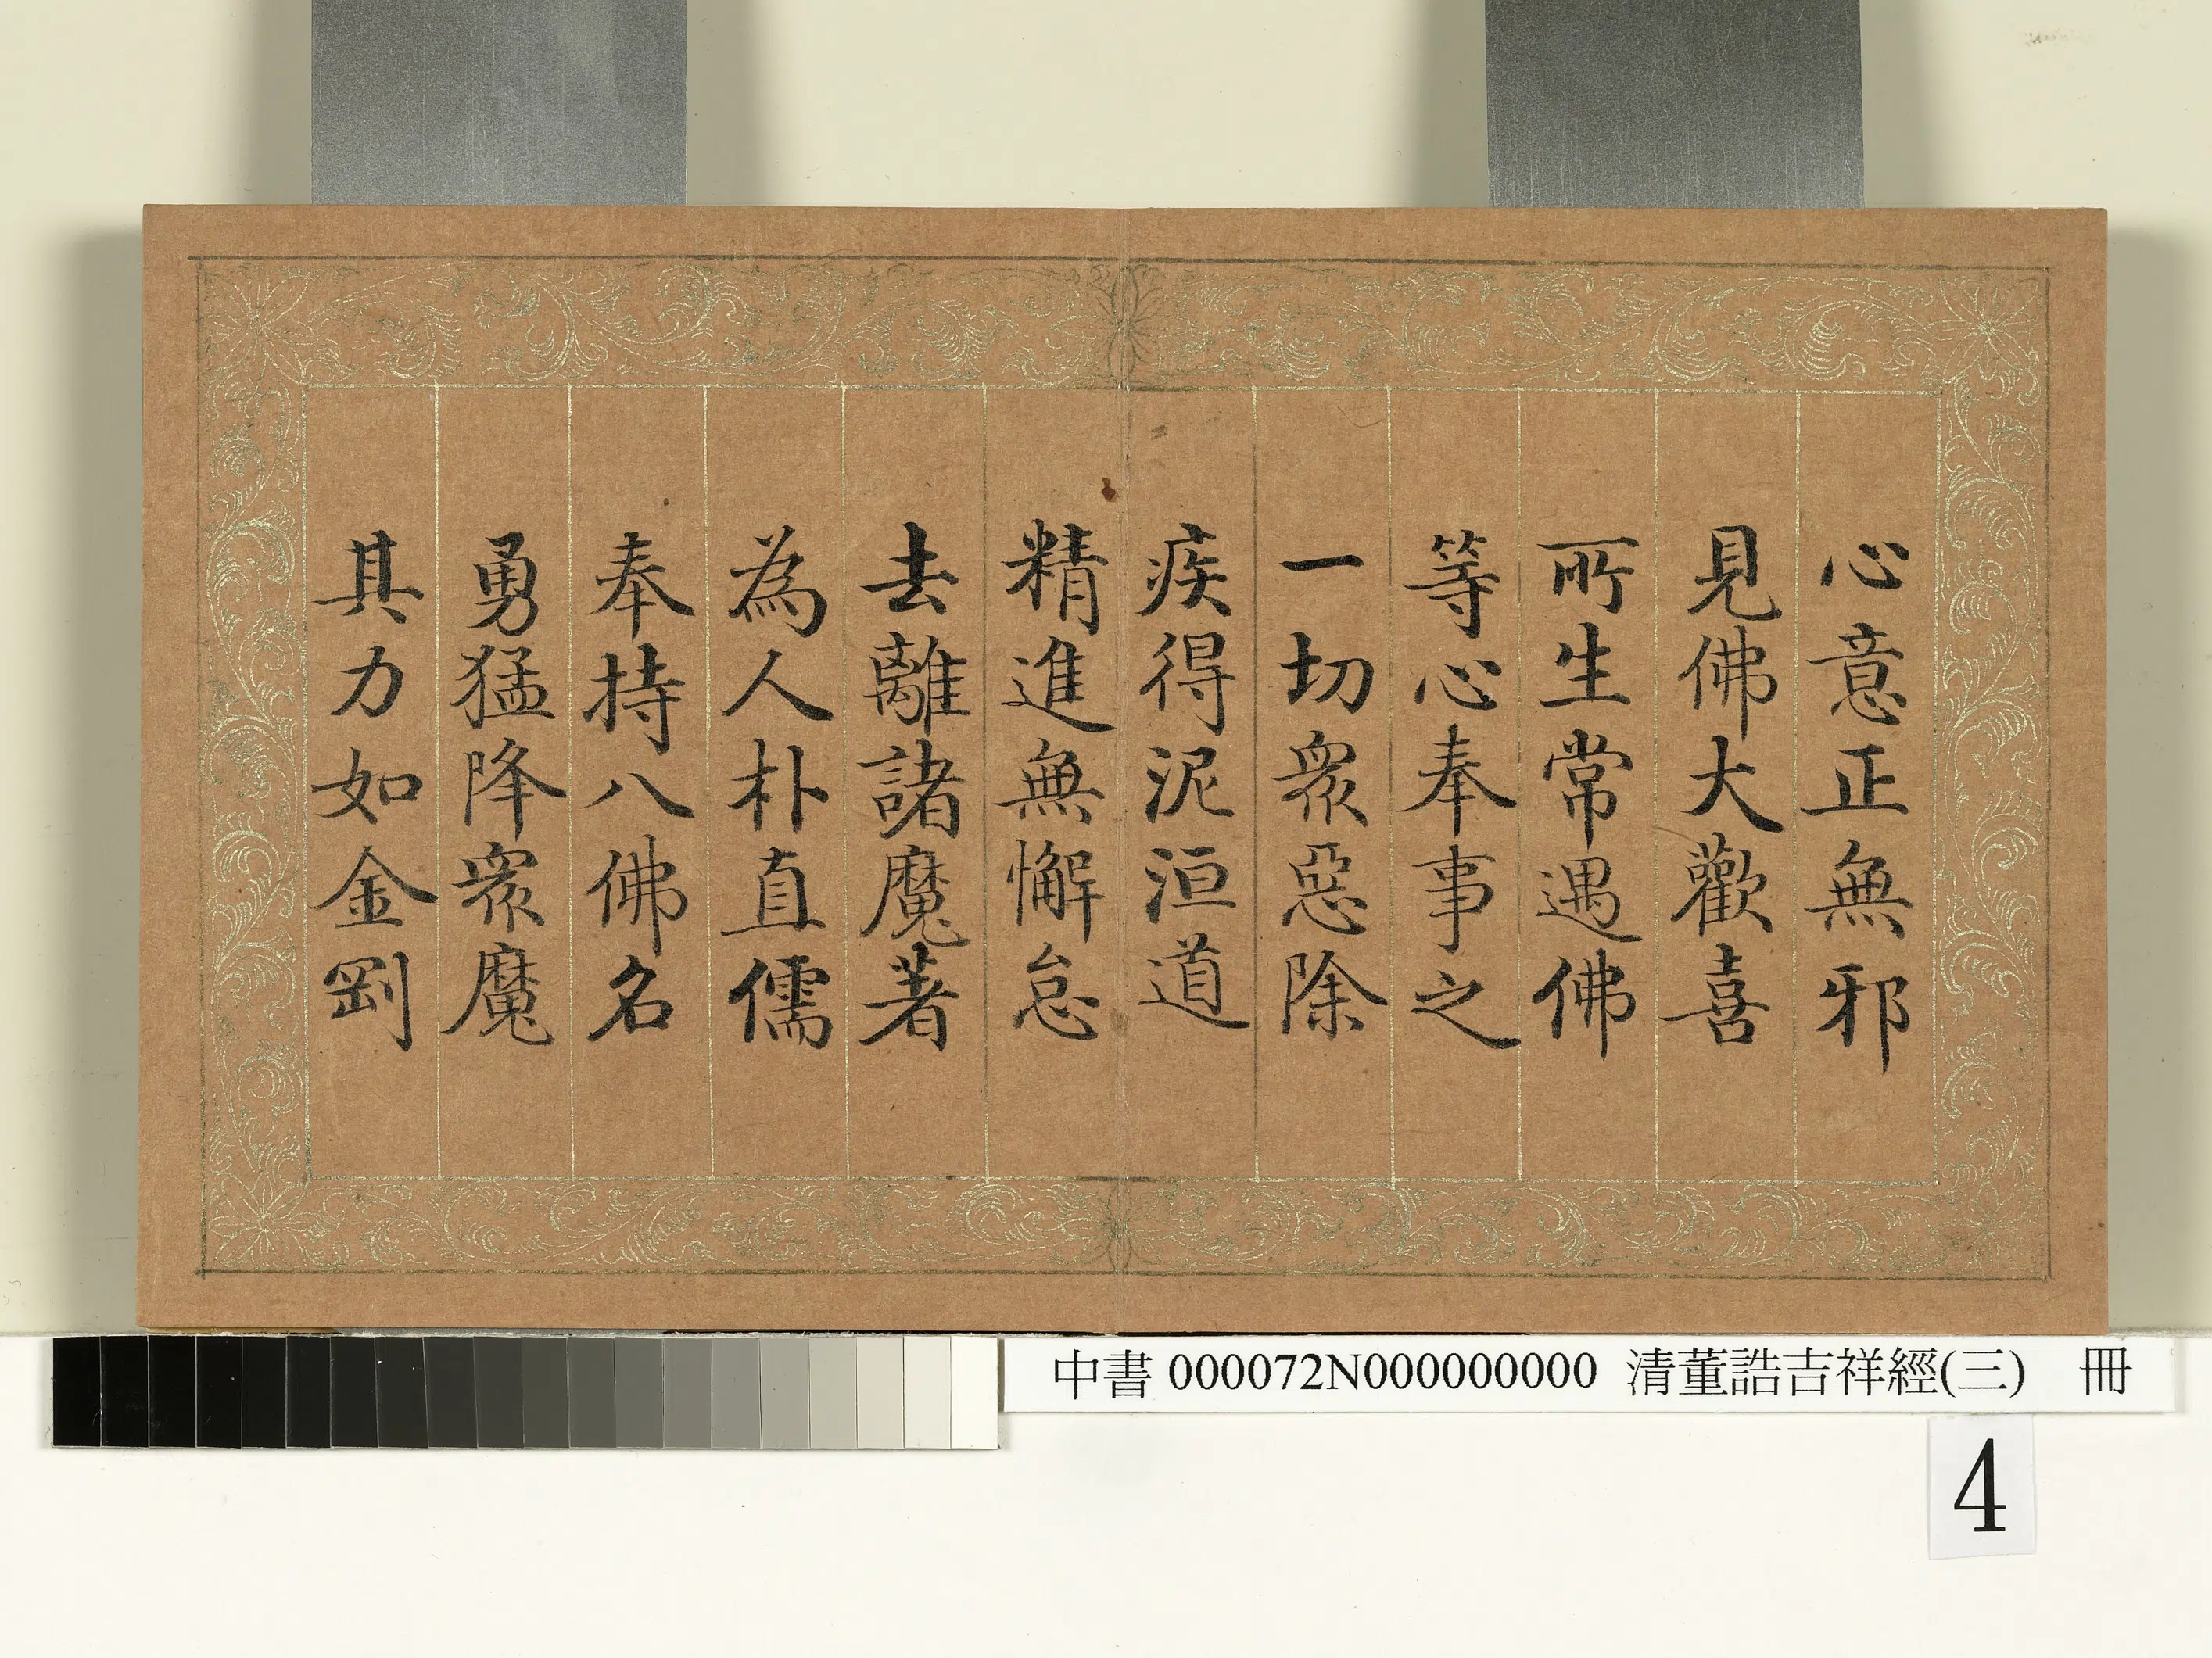 心意正無邪
見佛大歡喜
所生常遇佛
等心奉事之
一切眾惡除
疾得泥洹道
精進無懈怠
去離諸魔著
為人朴直儒
奉持八佛名
勇猛降眾魔
其力如金剛
中書 000072N000000000 清董誥吉祥經(三) 冊
4